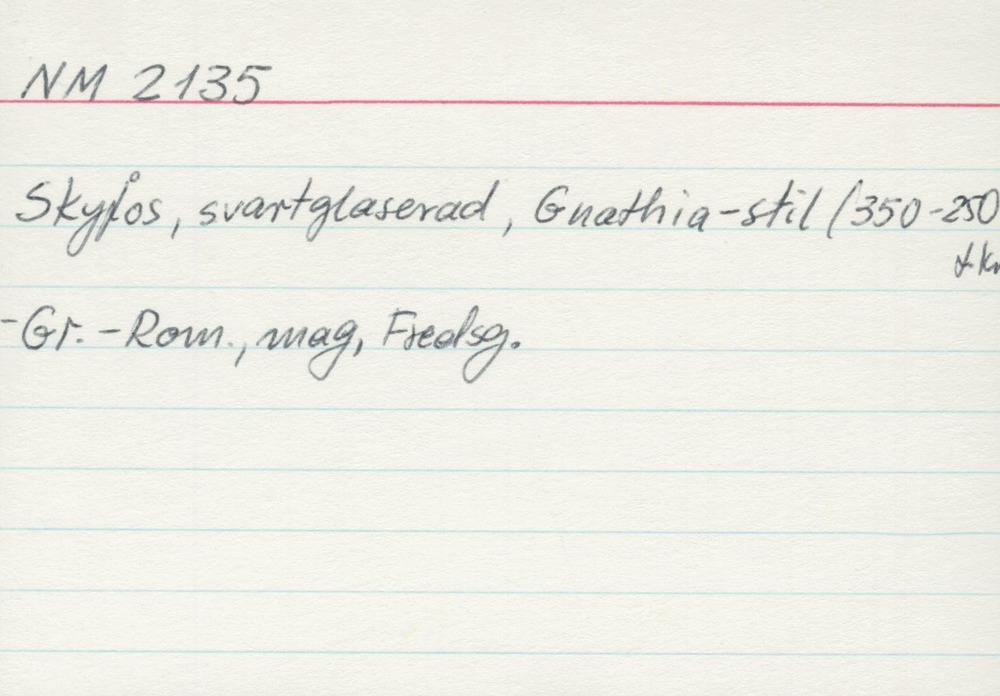 NM 2135
Skyfos, svartglaserad, Gnathia-stil (350-250
f.Kr
-Gr.-Rom., mag, Fredsg.